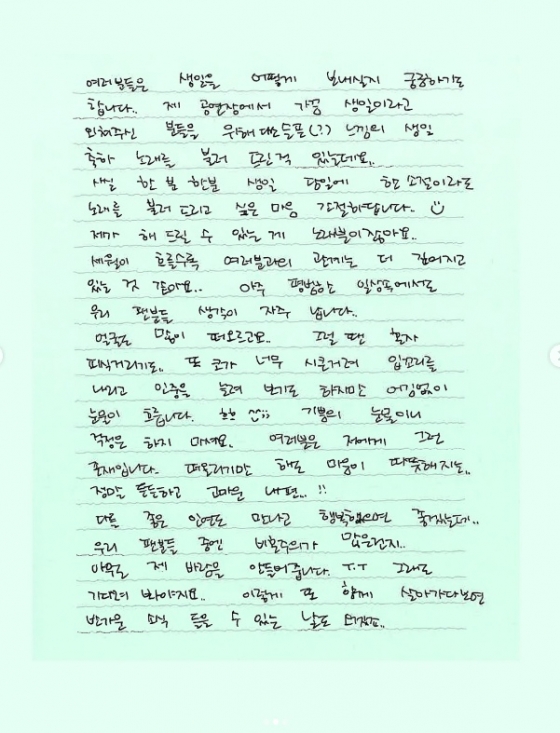 여러분들은 생일을 어떻게 보내실지 궁금하기도
합니다.. 제 공연장에서 가끔 생일이라고
외쳐주신 분들을 위해 대신 슬픈(?) 느낌의 생일
축하 노래를 불러 드린 적 있는데요..
사실 한 분 한분 생일 당일에 한 소절이라도
노래를 불러 드리고 싶은 마음 간절하답니다..
제가 해 드릴 수 있는 게 노래뿐이잖아요..
세월이 흐를수록 여러분과의 관계는 더 깊어지고
있는 것 같아요.. 아주 평범한 일상속에서도
우리 팬분들 생각이 자주 납니다..
얼굴들 많이 떠오르고요.. 그럴 땐 혼자
피식거리기도.. 또 코가 너무 시큰거려 입꼬리를
내리고 인중을 늘려 보기도 하지만 어김없이
눈물이 흐릅니다. ㅎㅎ ^^;; 기쁨의 눈물이니
걱정은 하지 마세요.. 여러분은 저에게 그런
존재입니다. 떠올리기만 해도 마음이 따뜻해지는..
정말 든든하고 고마운 내 편..!!
다들 좋은 인연도 만나고 행복했으면 좋겠는데..
우리 팬분들 중엔 비혼주의가 많은건지..
아무도 제 바람을 안들어줍니다. T.T 그래도
기다려 봐야지요.. 이렇게 또 함께 살아가다보면
반가운 소식 들을 수 있는 날도 오겠죠..